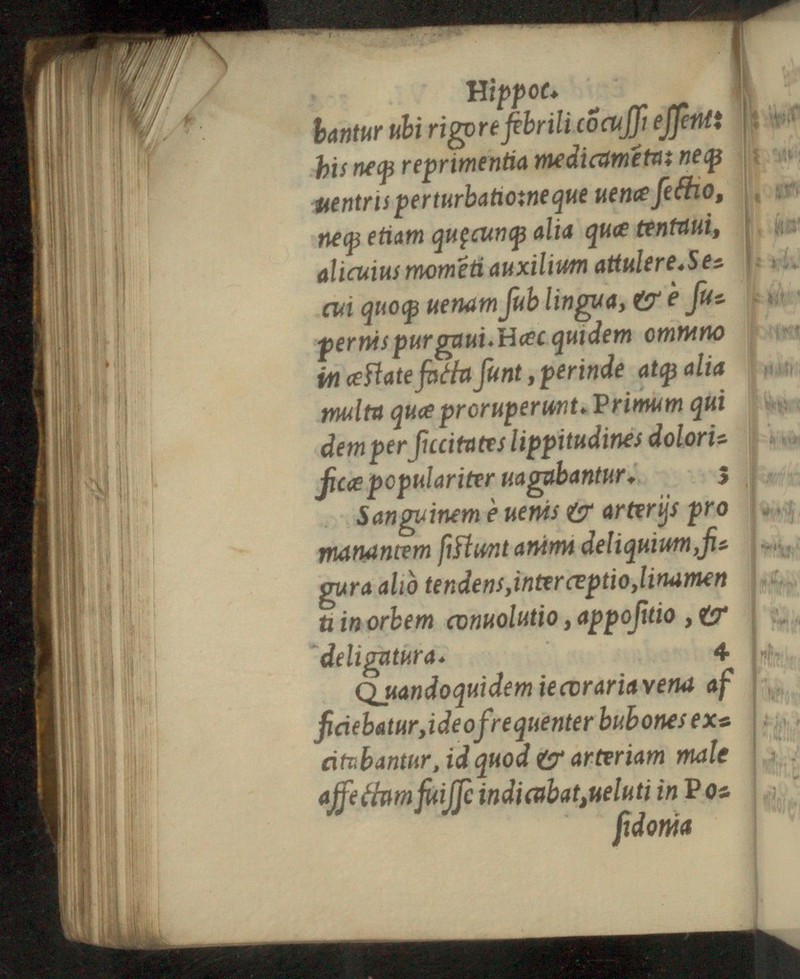 Hippoc.
bantur ubi rigore febrili cõcussi essent:
his neqꝫ reprimentia medicamẽta: neqꝫ
uentris perturbatio: neque uenæ sectio,
neqꝫ etiam quęcunqꝫ alia quæ tentaui,
alicuius momẽti auxilium attulere. Se-
cui quoqꝫ uenam sub lingua, & è su-
pernis purgaui. Hæc quidem omnino
in æstate facta sunt, perinde atqꝫ alia
multa quæ proruperunt. Primum qui
dem per siccitates lippitudines dolori-
ficæ populariter uagabantur. 3
Sanguinem è uenis & arterijs pro
manantem sistunt animi deliquium, fi-
gura aliò tendens, interceptio, linamen
ti in orbem conuolutio, appositio, &
deligatura. 4
Quandoquidem iecoraria vena af
ficiebatur, ideo frequenter bubones ex-
citabantur, id quod & arteriam male
affectam fuisse indicabat, ueluti in Po-
sidonia